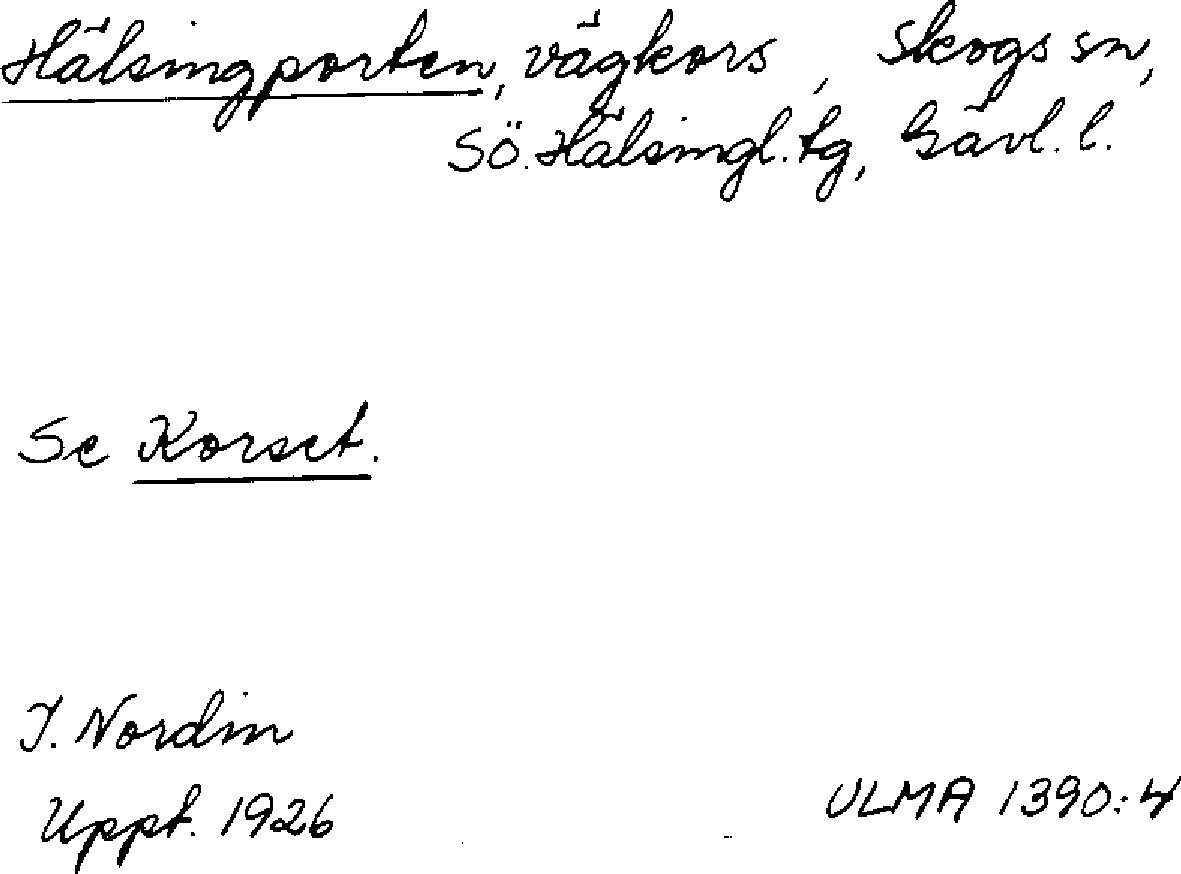 Hälsingporten, vägkors, Skogs sn,
Sö. Hälsingl. tg, Gävl. l.
Se Korset.
J. Nordin
Uppt. 1926
ULMA 1390:4